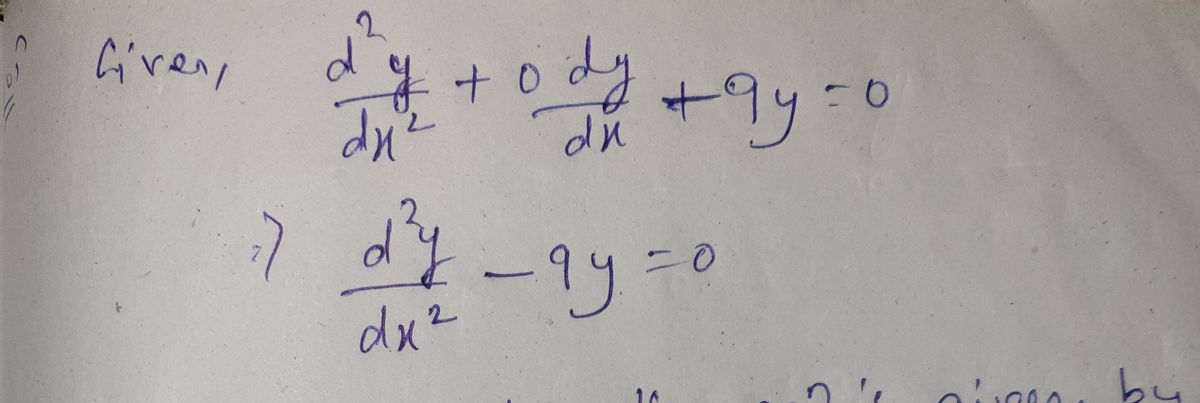 Given, d²y/dx² + 0 dy/dx + 9y = 0
⇒ d²y/dx² - 9y = 0
by